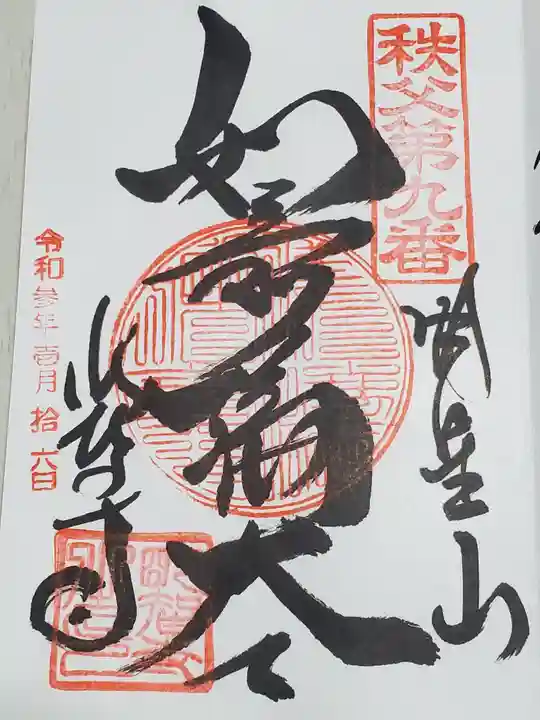 秩父第九番
明星山
如意輪大士
明智寺
令和参年壱月拾六日